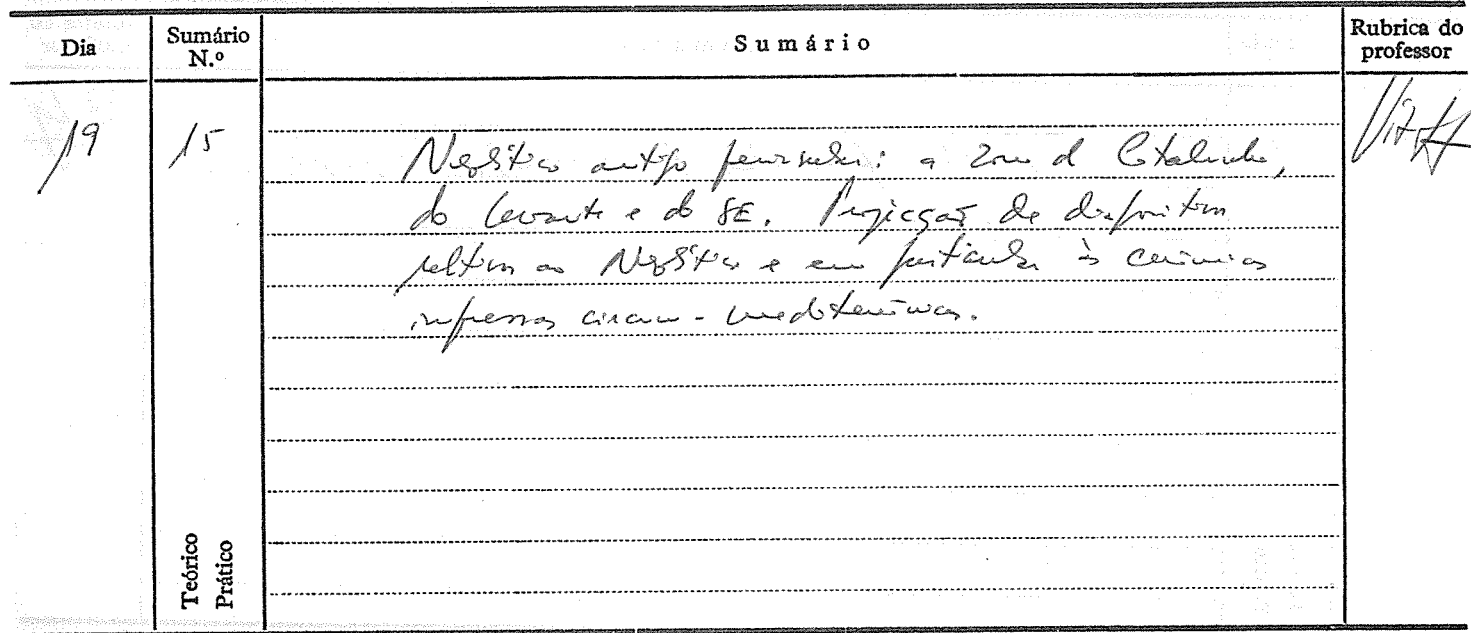 Dia
Sumário N.º
Sumário
Rubrica do professor
19
15
Neolítico antigo peninsular: a zona da Catalunha,
do Levante e do SE. Projecção de diapositivos
relativos ao Neolítico e em particular às cerâmicas
impressas circum-mediterrânicas.
Teórico
Prático